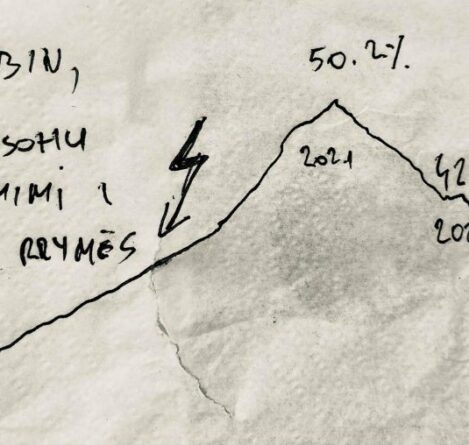 BIN,
SOHU
MIMI I
RRYMËS
50.2%
2021
42
202